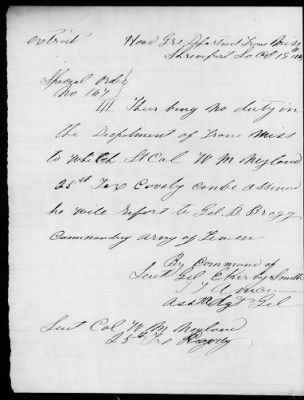 Extract Head Qrs Department Trans Miss
Shreveport La
Special Order
No 164
III There being no duty in
the Department of Trans Miss
to which Lt Col W M Neyland
25th Tex Cavalry can be assigned
he will report to Gel B Bragg
Commanding army of Tenn
By Command of
Lieut Gel E Kirby Smith
Asst Adgt Gel
Lieut Col W M Neyland
25th Tex Cavalry